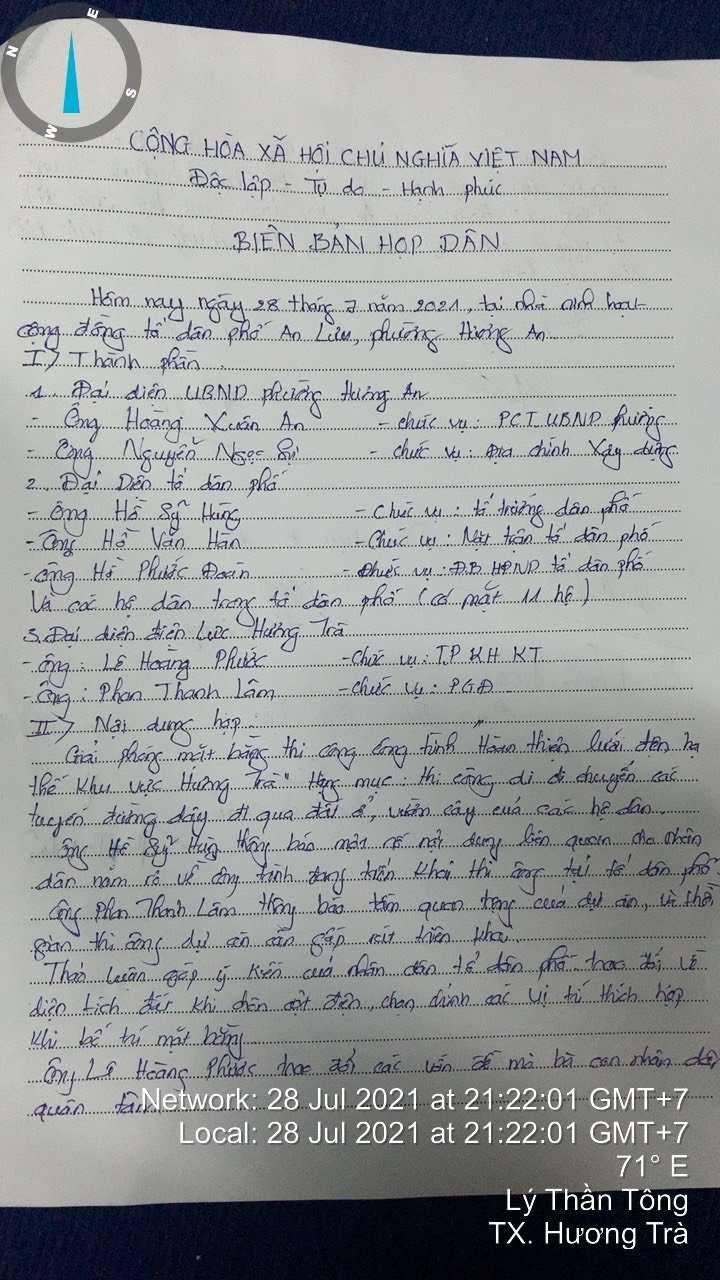 N
E
S
W
CỘNG HÒA XÃ HỘI CHỦ NGHĨA VIỆT NAM
Độc lập - Tự do - Hạnh phúc
BIÊN BẢN HỌP DÂN
Hôm nay ngày 28 tháng 7 năm 2021, tại nhà sinh hoạt
cộng đồng tổ dân phố An Lưu, phường Hương An
I) Thành phần
1. Đại diện UBND phường Hương An
- Ông Hoàng Xuân An - chức vụ: PCT UBND phường
- Ông Nguyễn Ngọc Sự - chức vụ: Địa chính Xây dựng
2. Đại Diện tổ dân phố
- Ông Hồ Sỹ Hùng - Chức vụ: tổ trưởng dân phố
- Ông Hồ Văn Hân - Chức vụ: Mặt trận tổ dân phố
- Ông Hồ Phước Đoàn - Chức vụ: ĐB HĐND tổ dân phố
Và các hộ dân trong tổ dân phố (có mặt 11 hộ)
3. Đại diện điện Lực Hương Trà
- Ông: Lê Hoàng Phước - Chức vụ: TP KH KT
- Ông: Phan Thanh Lâm - chức vụ: PGĐ
II) Nội dung họp
Giải phóng mặt bằng thi công công trình "Hoàn thiện lưới điện hạ
thế khu vực Hương Trà" Hạng mục: thi công di di chuyển các
tuyến đường dây đi qua đất ở, vườn cây của các hộ dân.
Ông Hồ Sỹ Hùng thông báo một số nội dung liên quan cho nhân
dân nắm rõ về công trình đang triển khai thi công tại tổ dân phố.
Ông Phan Thanh Lâm thông báo tầm quan trọng của dự án, và thời
gian thi công dự án cần gấp rút triển khai.
Thảo luận góp ý kiến của nhân dân tổ dân phố trao đổi về
diện tích đất khi chôn cột điện, chọn đỉnh các vị trí thích hợp
khi bố trí mặt bằng
Ông Lê Hoàng Phước trao đổi các vấn đề mà bà con nhân dân
quan tâm
Network: 28 Jul 2021 at 21:22:01 GMT+7
Local: 28 Jul 2021 at 21:22:01 GMT+7
71° E
Lý Thần Tông
TX. Hương Trà